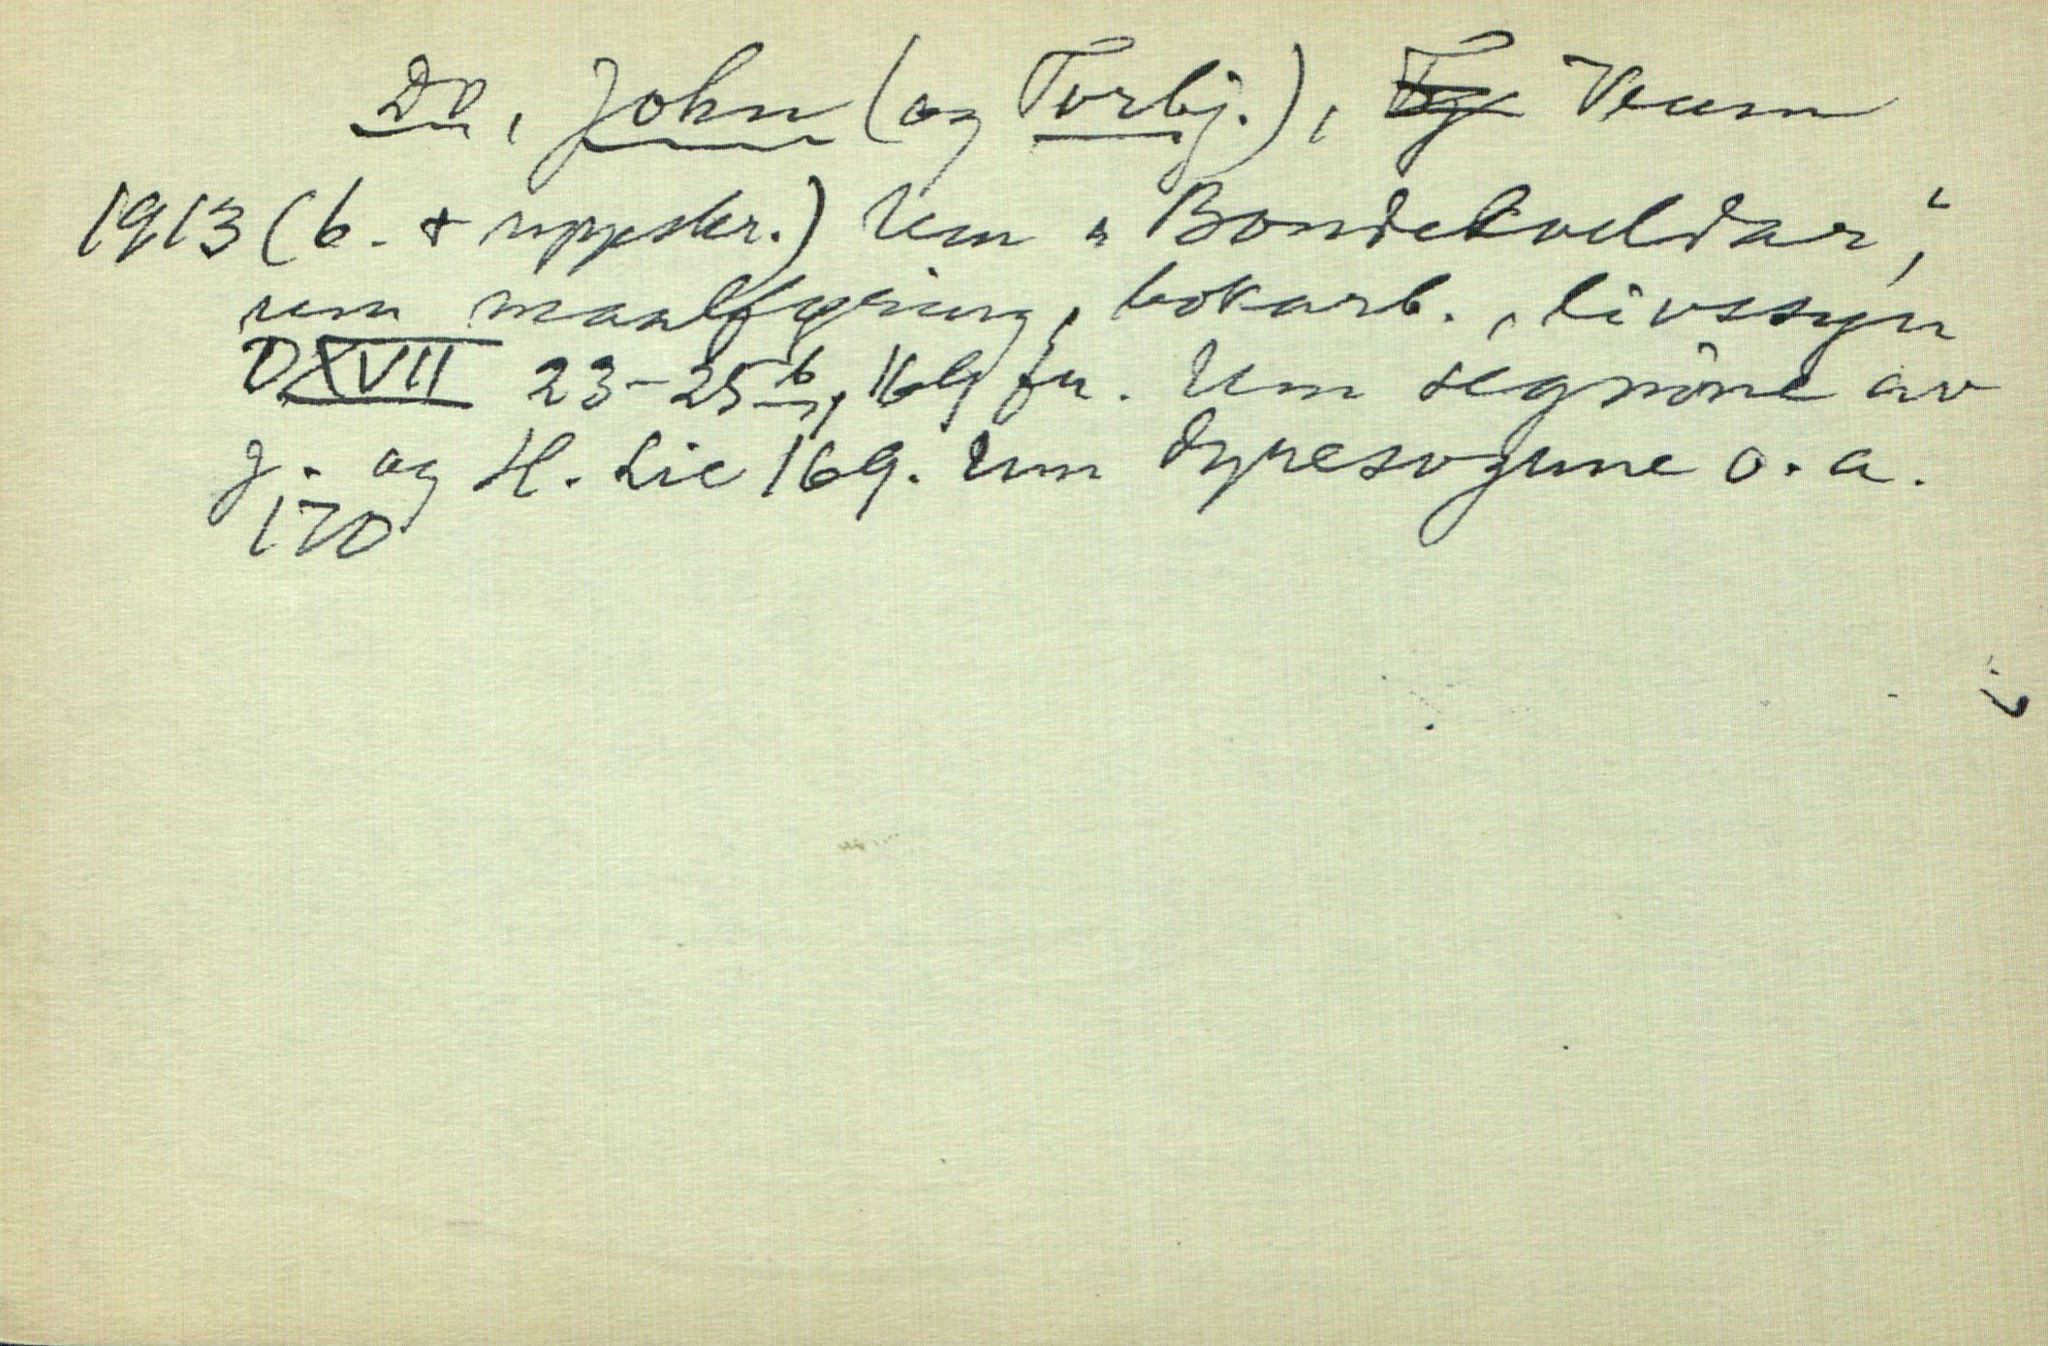 Do, John (og Torbj.), Veum
1913 (b. + uppskr.) Um "Bondekveldar",
um maalføring, bokarb., livssyn
DXVII 23-25 b, 169 fr. Um segnone av
J. og H. Lie 169. Um dyresogune o. a.
170